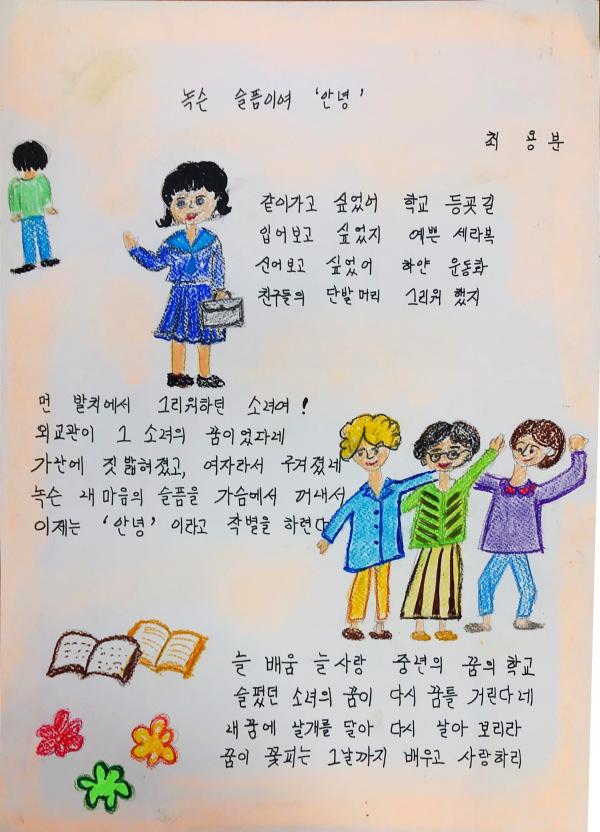 녹슨 슬픔이여 '안녕'
최 용 분
같이가고 싶었어 학교 등굣길
입어보고 싶었지 예쁜 세라복
신어보고 싶었어 하얀 운동화
친구들의 단발머리 그리워 했지
먼 발치에서 그리워하던 소녀여!
외교관이 그 소녀의 꿈이었다네
가난에 짓밟혀졌고, 여자라서 구겨졌네
녹슨 내 마음의 슬픔을 가슴에서 꺼내서
이제는 '안녕' 이라고 작별을 하련다
늘 배움 늘사랑 중년의 꿈의 학교
슬펐던 소녀의 꿈이 다시 꿈틀 거린다네
내꿈에 날개를 달아 다시 날아 보리라
꿈이 꽃피는 그날까지 배우고 사랑하리